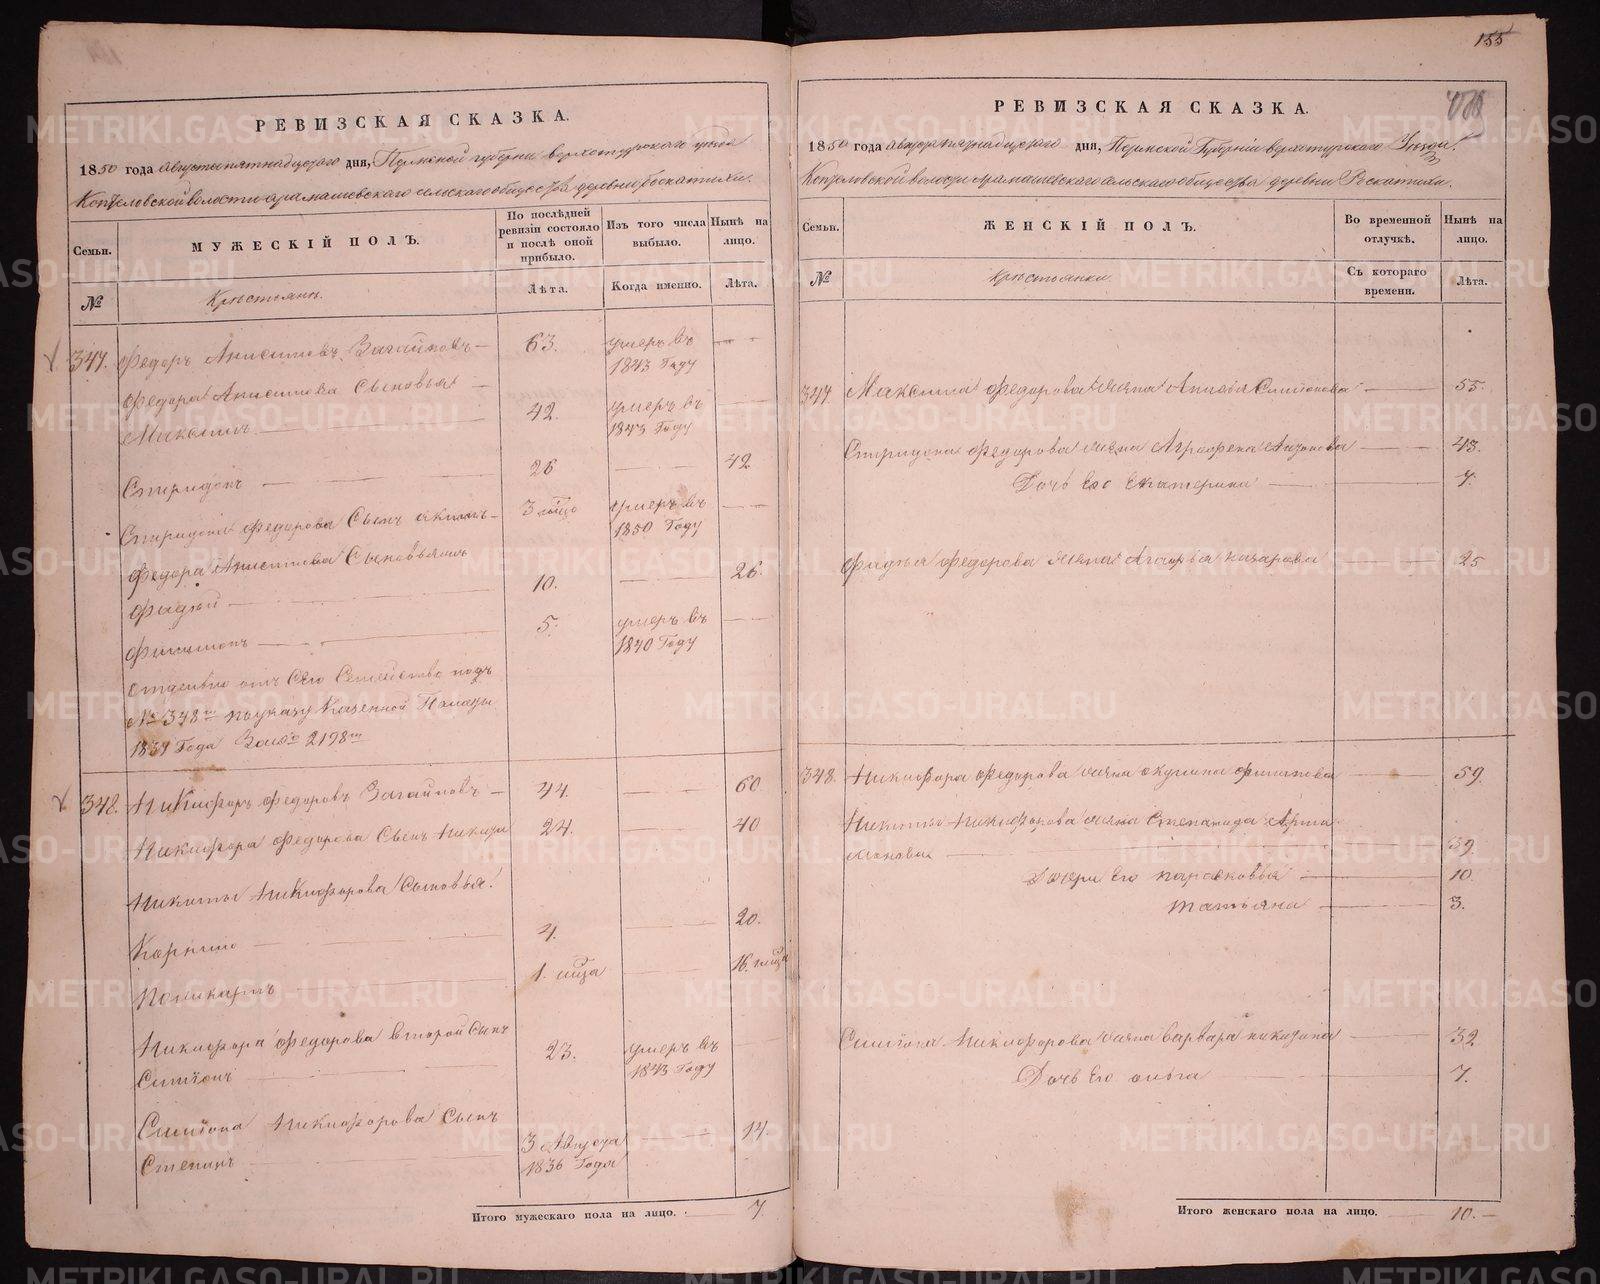 155
РЕВИЗСКАЯ СКАЗКА.
1850 года августа пятнадцатаго дня, Пермской губернии верхотурскаго уезда
Коптеловской волости арамашевскаго сельскаго общества деревни Роскатихи.
Семьи.
МУЖЕСКІЙ ПОЛЪ.
По послѣдней ревизіи состояло и послѣ оной прибыло.
Изъ того числа выбыло.
Нынѣ на лицо.
№
Крестьянъ.
Лѣта.
Когда именно.
Лѣта.
347. Федоръ Анисимовъ Загайновъ 63. умеръ въ 1843 Году
Федора Анисимова Сыновья
Максимъ 42. умеръ въ 1843 Году
Спиридонъ 26 42
Спиридона Федорова Сынъ 3 умеръ въ 1850 Году
Федора Анисимова Сыновья
Фадѣй 10. 26.
Филимонъ 5. умеръ въ 1840 Году
отъ Сего Семейства подъ
№ 348м по указу Казенной Палаты
Года За № 2198м
348. Никифоръ Федоровъ Загайновъ 44. 60
Никифора Федорова Сынъ Никита 24. 40
Никиты Никифорова Сыновья
Корнило 4. 20.
Поликарпъ 1. 16.
Никифора Федорова второй Сынъ
Симіонъ 23. умеръ въ 1843 Году
Симіона Никифорова Сынъ
Степанъ 3 Августа 1836 Года 14.
Итого мужескаго пола на лицо. 7
РЕВИЗСКАЯ СКАЗКА.
1850 года августа пятнадцатаго дня, Пермской Губерніи верхотурскаго Уезда
Коптеловской волости арамашевскаго сельскаго общества деревни Роскатихи.
Семьи.
ЖЕНСКІЙ ПОЛЪ.
Во временной отлучкѣ.
Нынѣ на лицо.
№
Крестьянки.
Съ котораго времени.
Лѣта.
347 Максима Федорова жена Анисья Симионова 55.
Спиридона Федорова жена Аграфена Антонова 43.
Дочь Его Екатерина 7.
Фадѣя Федорова жена Агафья Назарова 25
348. Никифора Федорова жена Акулина Филипова 59.
Никиты Никифорова жена Степанида
39.
Дочери Его Парасковья 10.
Татьяна 3.
Симіона Никифорова жена Варвара Никитина 32
Дочь Его Ольга 7.
Итого женскаго пола на лицо. 10.
METRIKI.GASO-URAL.RU